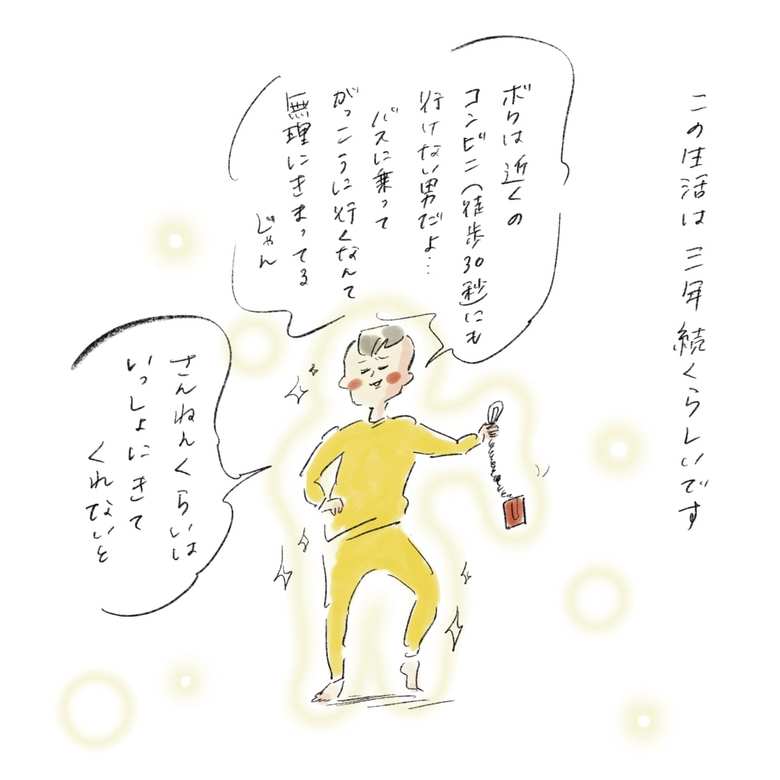 この生活は三年続くらしいです
ボクは近くの
コンビニ(徒歩30秒)にも
行けない男だよ…
バスに乗って
がっこうに行くなんて
無理にきまってる
じゃん
さんねんくらいは
いっしょにきて
くれないと